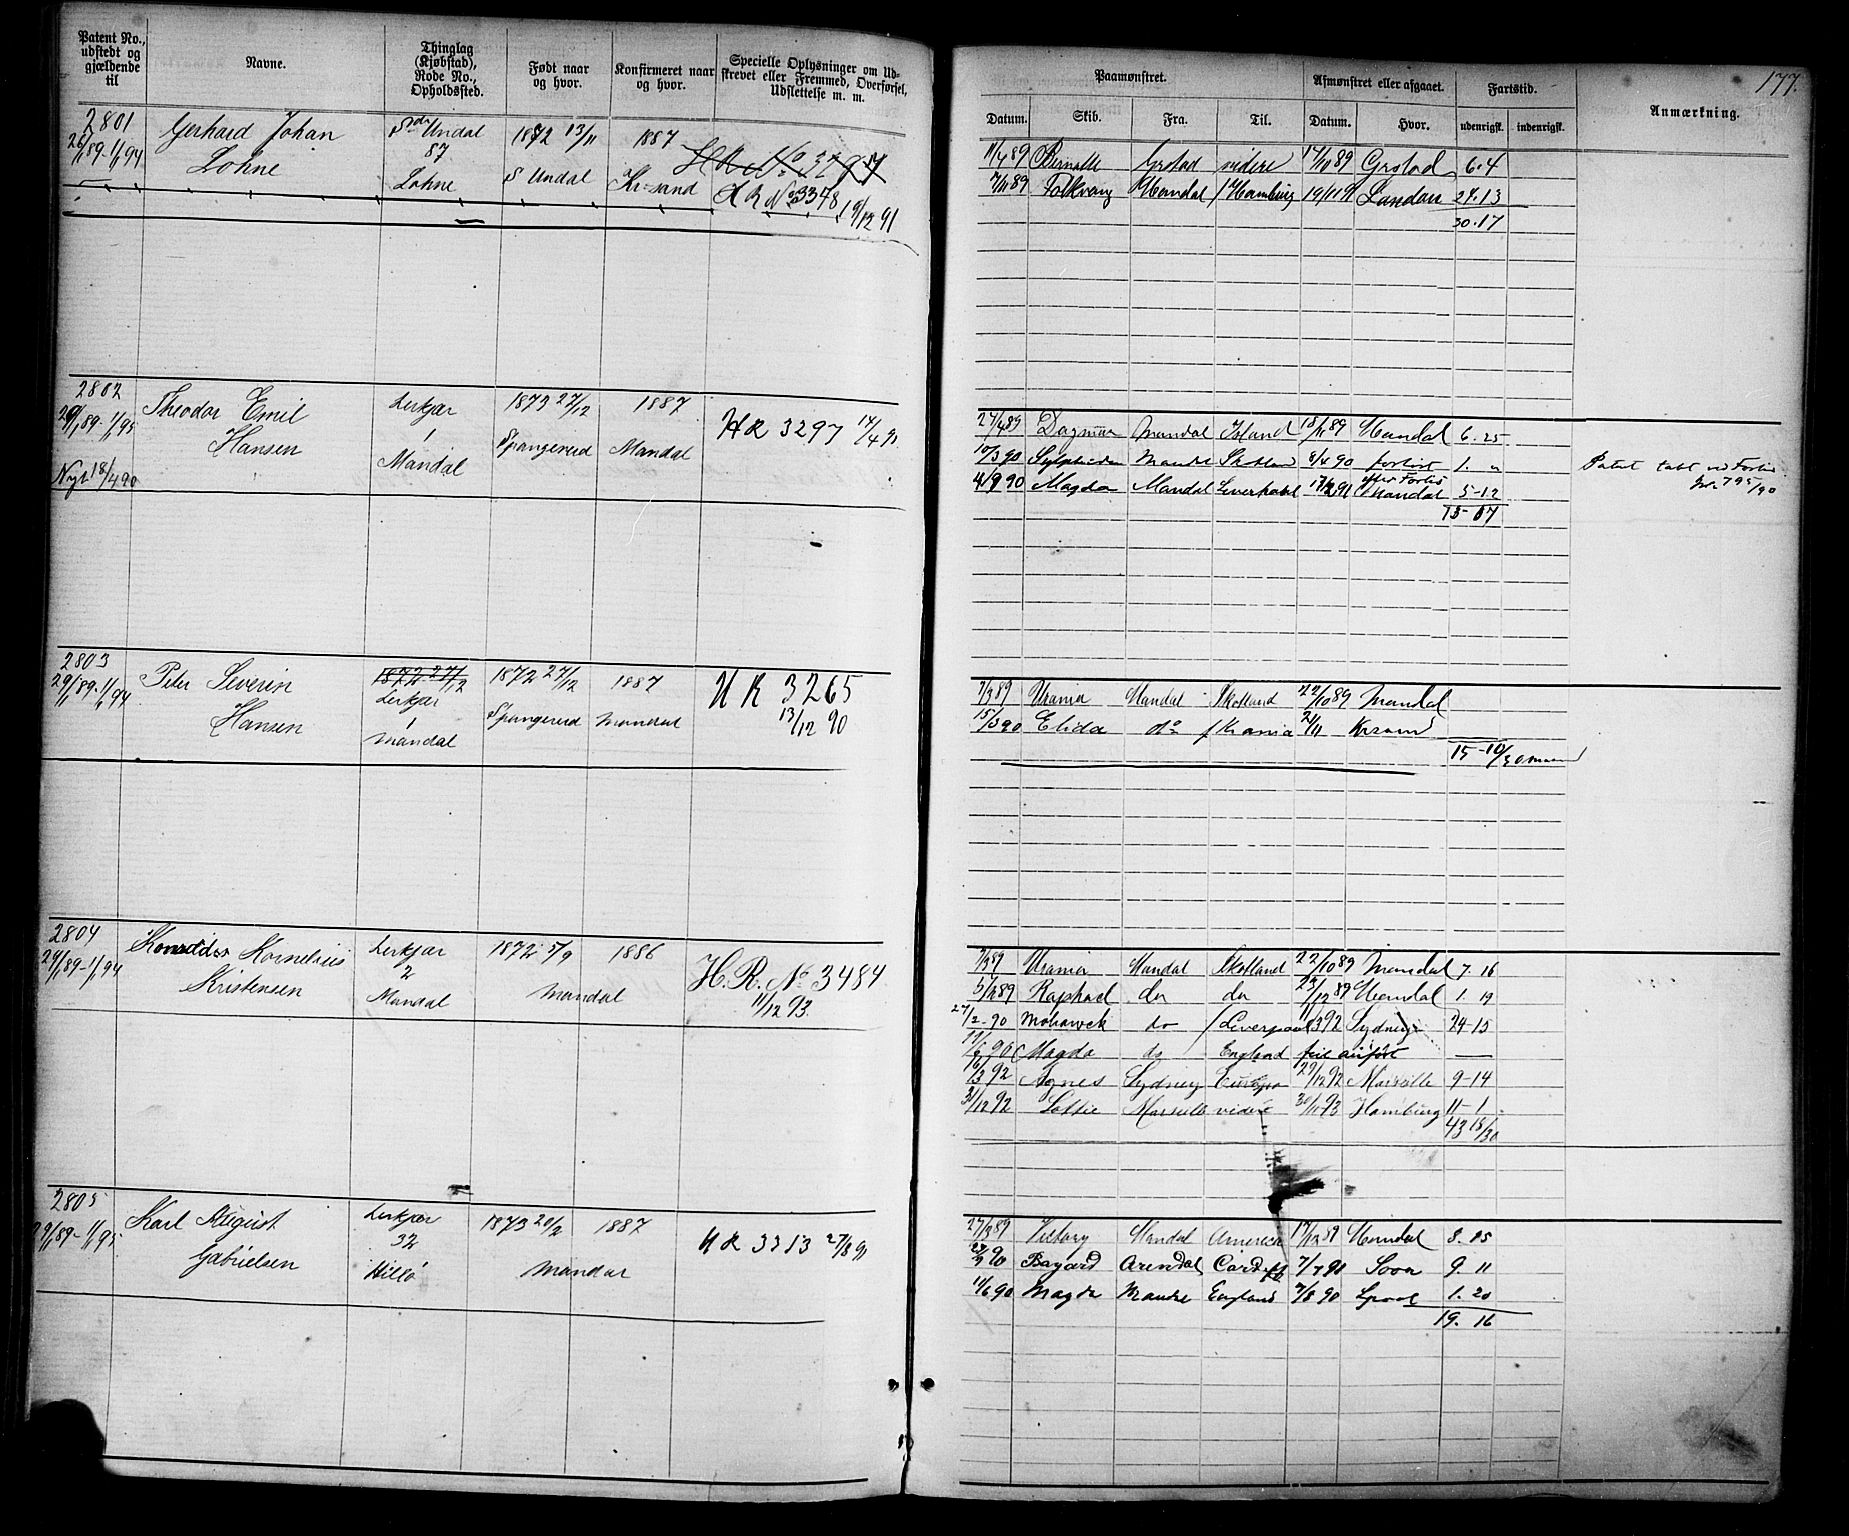 Patent No., udstedt og gjældende til
Navne.
Thinglag (Kjøbstad), Rode No., Opholdssted.
Født naar og hvor.
Konfirmeret naar og hvor.
Specielle Oplysninger om Udskrevet eller Fremmed, Overførsel, Udslettelse m. m.
2801
26/1 89-1/1 94
Gerhard Johan
Lohne
Sdr Undal
87
Lohne
1872 13/11
S Undal
1887
Kr.sand
H R No 3378 19/12 91
2802
29/1 89-1/1 95
Nyt 18/4 90
Theodor Emil
Hansen
Lerkjær
1
Mandal
1873 27/12
Spangereid
1887
Mandal
HR 3297 17/4 91
2803
29/1 89-1/1 94
Peter Severin
Hansen
1872 27/12
Lerkjær
1
Mandal
1872 27/12
Spangereid
1887
Mandal
H R 3265
13/12 90
2804
29/1 89-1/1 94
Kornelius
Kristensen
Lerkjær
2
Mandal
1872 5/9
1886
Mandal
H. R. No 3484
11/12 93.
2805
29/1 89-1/1 95
Karl August
Gabrielsen
Lerkjær
32
Hillø
1873 20/2
1887
Mandal
H R 3313 27/8 91
177.
Paamønstret.
Afmønstret eller afgaaet.
Fartstid.
Anmærkning.
Datum.
Skib.
Fra.
Til.
Datum.
Hvor.
udenrigsk.
indenrigsk.
11/4 89 Grstad videre 17/10 89 Grstad 6.4
7/11 89 Folkvang Mandal Hamburg 19/11 91 London 24.13
30.17
27/4 89 Dagmar Mandal Island 18/11 89 Mandal 6.25
10/3 90 Sylphiden Mandal Skotland 8/4 90 forlist 1. "
Patent tabt ved Forlis
Jnr. 795/90
4/9 90 Magda Mandal Liverpool 17/2 91 Mandal 5-12
13-07
7/3 89 Urania Mandal Skotland 22/10 89 Mandal
15/3 90 Elida do Krania 21/11 Krsand
15-10/30 maan
7/3 89 Urania Mandal Skotland 22/10 89 Mandal 7.16
5/11 89 Raphael do do 23/12 89 Mandal 1.19
27/2 90 Mohawek do Liverpool 11/3 92 Sydney 24-15
Magda do England feil anført —
16/3 92 Agnes Sydney Europa 29/12 92 Marseille 9-14
31/12 92 Lottie Marseille videre 30/11 93 Hamburg 11-1
43 15/30
27/3 89 Victory Mandal America 17/12 89 Mandal 8.25
Bayard Arendal Cardiff 7/7 91 Soon 9.11
11/6 90 Magda Mandal England 7/8 90 Lpool 1.20
19.16